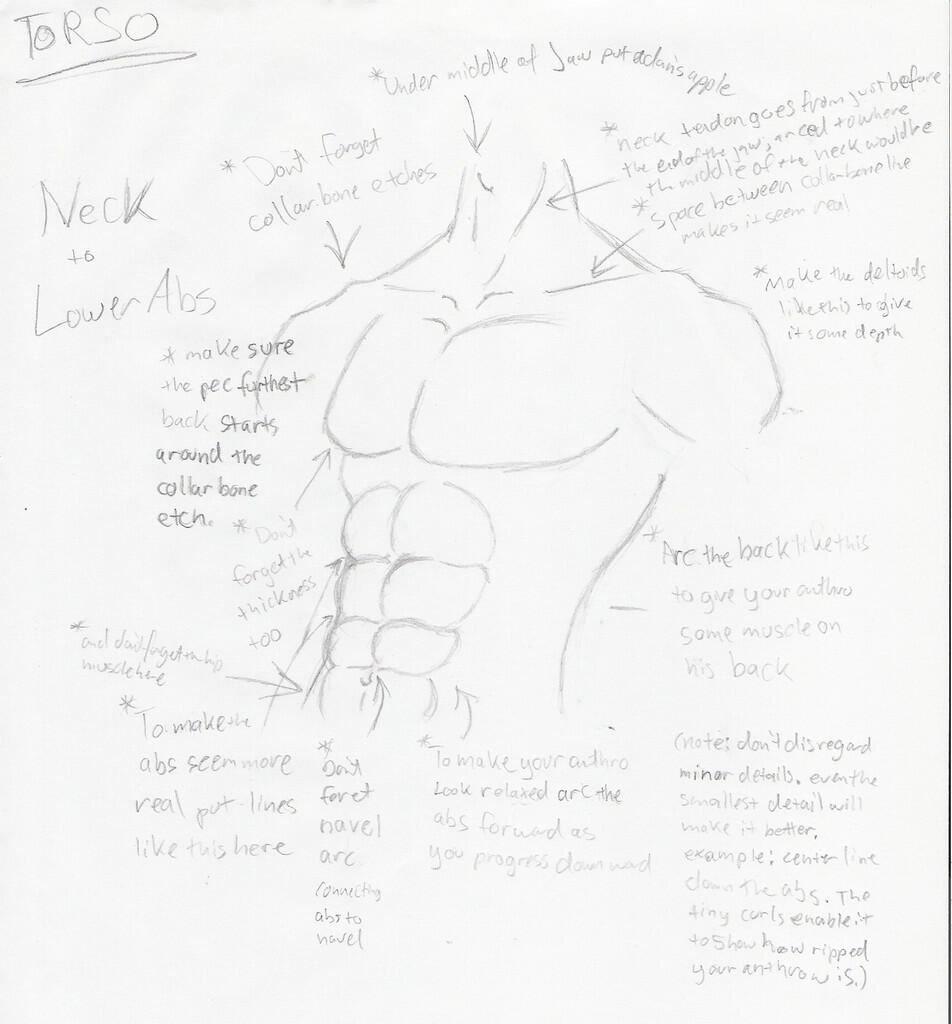 TORSO
Neck
to
Lower Abs
*Under middle of Jaw put adam's
apple
* Don't forget
collar bone etches
* neck tendon goes from just before
the end of the jaw; arced to where
the middle of the neck would be
* Space between collar bone line
makes it seem real
* Make the deltoids
like this to give
it some depth
* make sure
the pec furthest
back starts
around the
collar bone
etch.
* Don't
forget the
thickness
too
* and don't forget the hip
muscle here
* To make the
abs seem more
real put lines
like this here
* Don't
foret
navel
arc.
connecting
abs to
navel
* To make your anthro
Look relaxed arc the
abs forward as
you progress downward
* Arc the back like this
to give your anthro
some muscle on
his back
(note: don't disregard
minor details. even the
smallest detail will
make it better.
example: center line
down the abs. The
tiny curls enable it
to show how ripped
your anthrow is.)